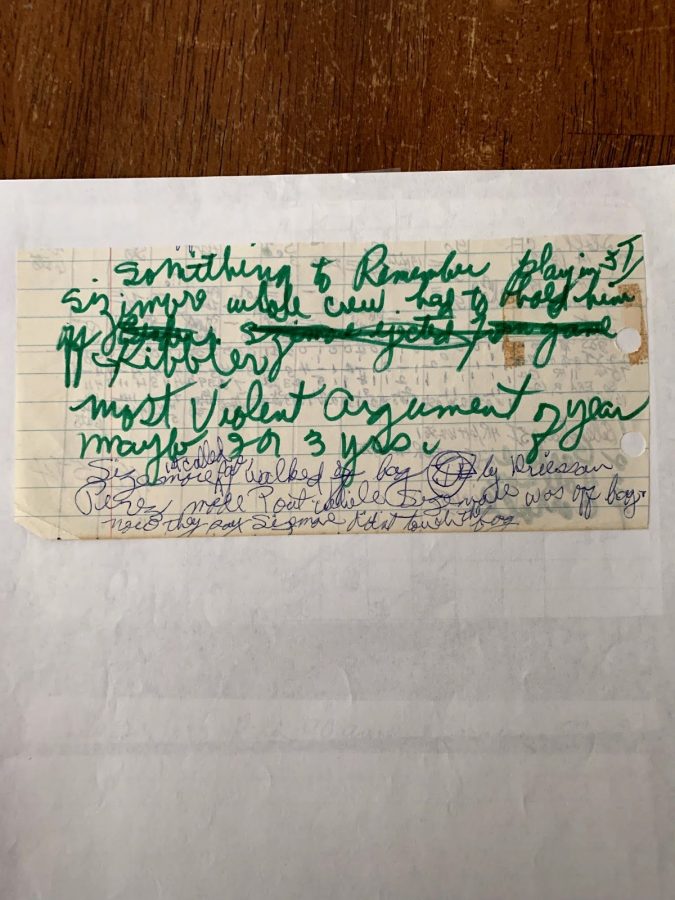 Somithing to Remember playin
Sizimore whole crew had to hold him
off Kibbler
most Violent argument of year
maybe 2 or 3 yrs.
Sizemore walked off bag by Dreessen
Perez made P out while Sizemore was off bag
now they say Sizmore didnt touch the bag